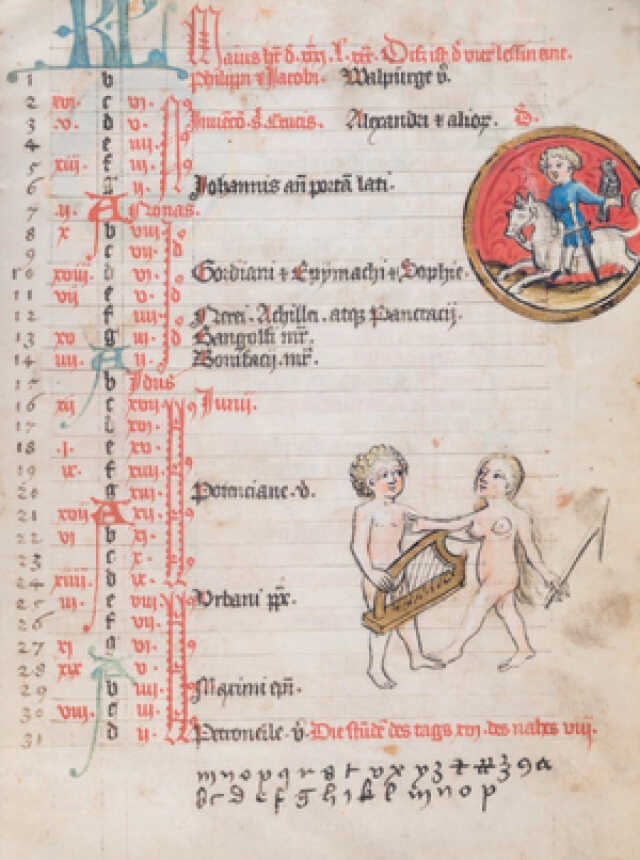 KL Maius
1 b Philippi & Jacobi. Walpurge v̄.
2 xvi. c vi.
3 v. d v. Alexandri & alior.
4 e iiij.
5 xiii. f iij.
6 ij. Johannis an̄ portā lati.
7 ij. A Nonas.
8 x b viij
9 c vij.
10 xviii. d vi. Gordiani & Epymachi & Sophie.
11 vij e v.
12 f iiij. Nerei. Achillei. atqz Pancracij.
13 xv g iij. Gangolfi mr̄.
14 iiij. A ij. Bonifacij. mr̄.
15 b Idus
16 xij c xvij Junij.
17 xvi.
18 .i. e xv.
19 ix. f xiiij.
20 g xiij. Potenciane. v.
21 xvij A xij.
22 vi b xi.
23 c x.
24 xiiij. d ix.
25 iij. e viij. Urbani pp̄.
26 f vij.
27 xi g vi.
28 xix. A v.
29 b iiij. Maximi ep̄i.
30 viij. c iij.
31 d ij. Petronelle v̄. Die stūde des tags xvi. des nahts viij.
m n o p q r s t v x y z
c d e f g h i k l m n o p